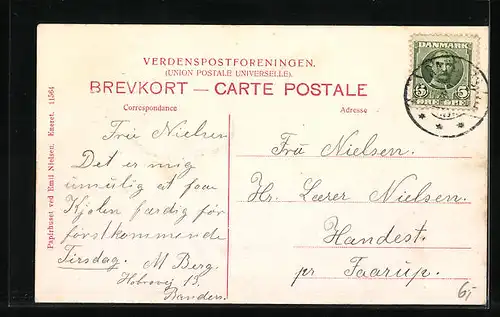 VERDENSPOSTFORENINGEN.
(UNION POSTALE UNIVERSELLE).
BREVKORT – CARTE POSTALE
Correspondance
Adresse
DANMARK
5 5
ØRE ØRE
Papirhuset ved Emil Nielsen. Eneret. 11564
Fru Nielsen
Det er mig
umulig at faa
Kjolen færdig før
førstkommende
Tirsdag. M Berg.
Hobrovej 13
Randers.
Fru Nielsen.
Hr. Lærer Nielsen.
Handest.
pr Faarup.
6,-